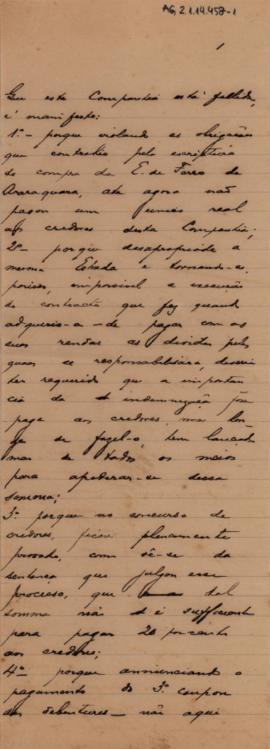 AG, 2.1.14.458-1
1
Que esta Companhia está fallida,
é manifesto:
1º - porque violando as obrigações
que contrahiu pela escriptura
de compra da E. de Ferro de
Araraquara, até agora não
pagou um real
aos credores desta Companhia;
2º - porque desapropriada a
mesma Estrada e tornando-se,
porisso, impossivel a execução
do contracto que fez quando
adqueriu-a - de pagar com as
suas rendas as dividas pelas
quaes se responsabilisára, deveria
ter requerido que a importan
cia da indemnização fosse
paga aos credores, mas lon-
ge de fazel-o, tem lançado
mão de todos os meios
para apoderar-se dessa
somma;
3º porque no concurso de
credores, ficou plenamente
provado, com sê-se da
sentença que julgou esse
processo, que tal
somma não é sufficiente
para pagar 20 por cento
aos credores;
4º - porque annunciando o
pagamento do 3º coupon
dos debentures - não aqui